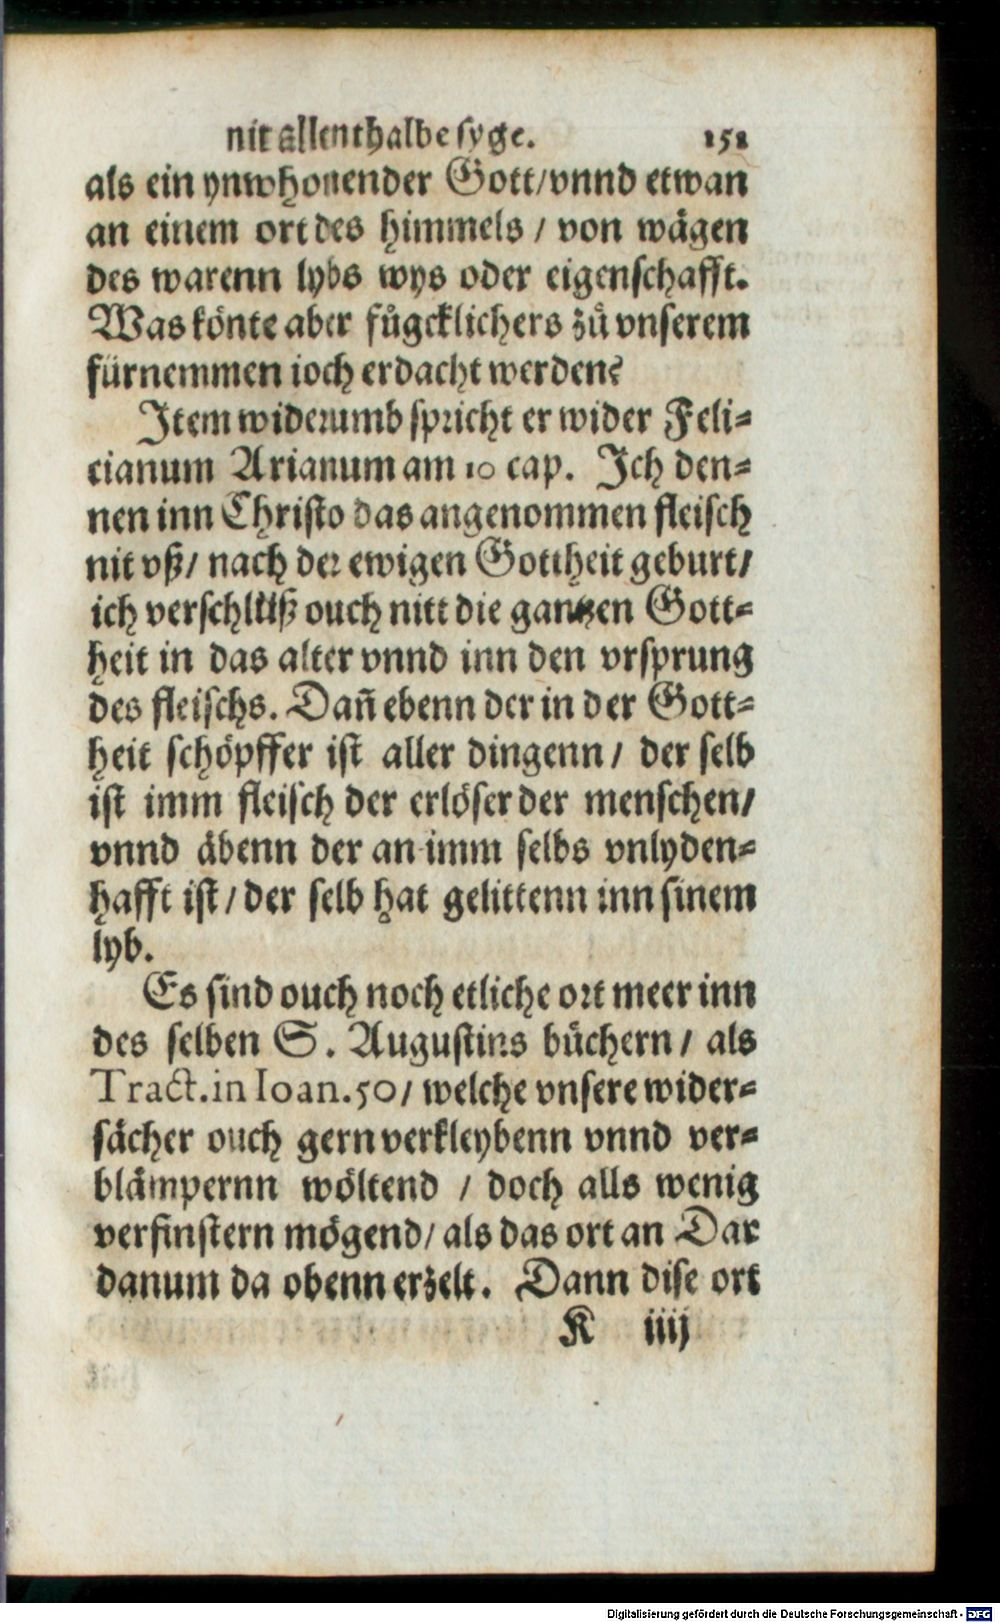 nit allenthalbe syge. 151
als ein ynwhonender Gott/vnnd etwan
an einem ort des himmels / von wägen
des warenn lybs wys oder eigenschafft.
Was könte aber fůgcklichers zů vnserem
fürnemmen ioch erdacht werden?
Item widerumb spricht er wider Feli⸗
cianum Arianum am 10 cap. Ich den⸗
nen inn Christo das angenommen fleisch
nit vß/ nach der ewigen Gottheit geburt/
ich verschlüß ouch nitt die gantzen Gott⸗
heit in das alter vnnd inn den vrsprung
des fleischs. Dañ ebenn der in der Gott⸗
heit schöpffer ist aller dingenn/ der selb
ist imm fleisch der erlöser der menschen/
vnnd äbenn der an imm selbs vnlyden⸗
hafft ist/ der selb hat gelittenn inn sinem
lyb.
Es sind ouch noch etliche ort meer inn
des selben S. Augustins bůchern/ als
Tract.in Ioan.50/ welche vnsere wider⸗
sächer ouch gern verkleybenn vnnd ver⸗
blämpernn wöltend / doch alls wenig
verfinstern mögend/ als das ort an Dar
danum da obenn erzelt. Dann dise ort
K iiij
Digitalisierung gefördert durch die Deutsche Forschungsgemeinschaft - DFG